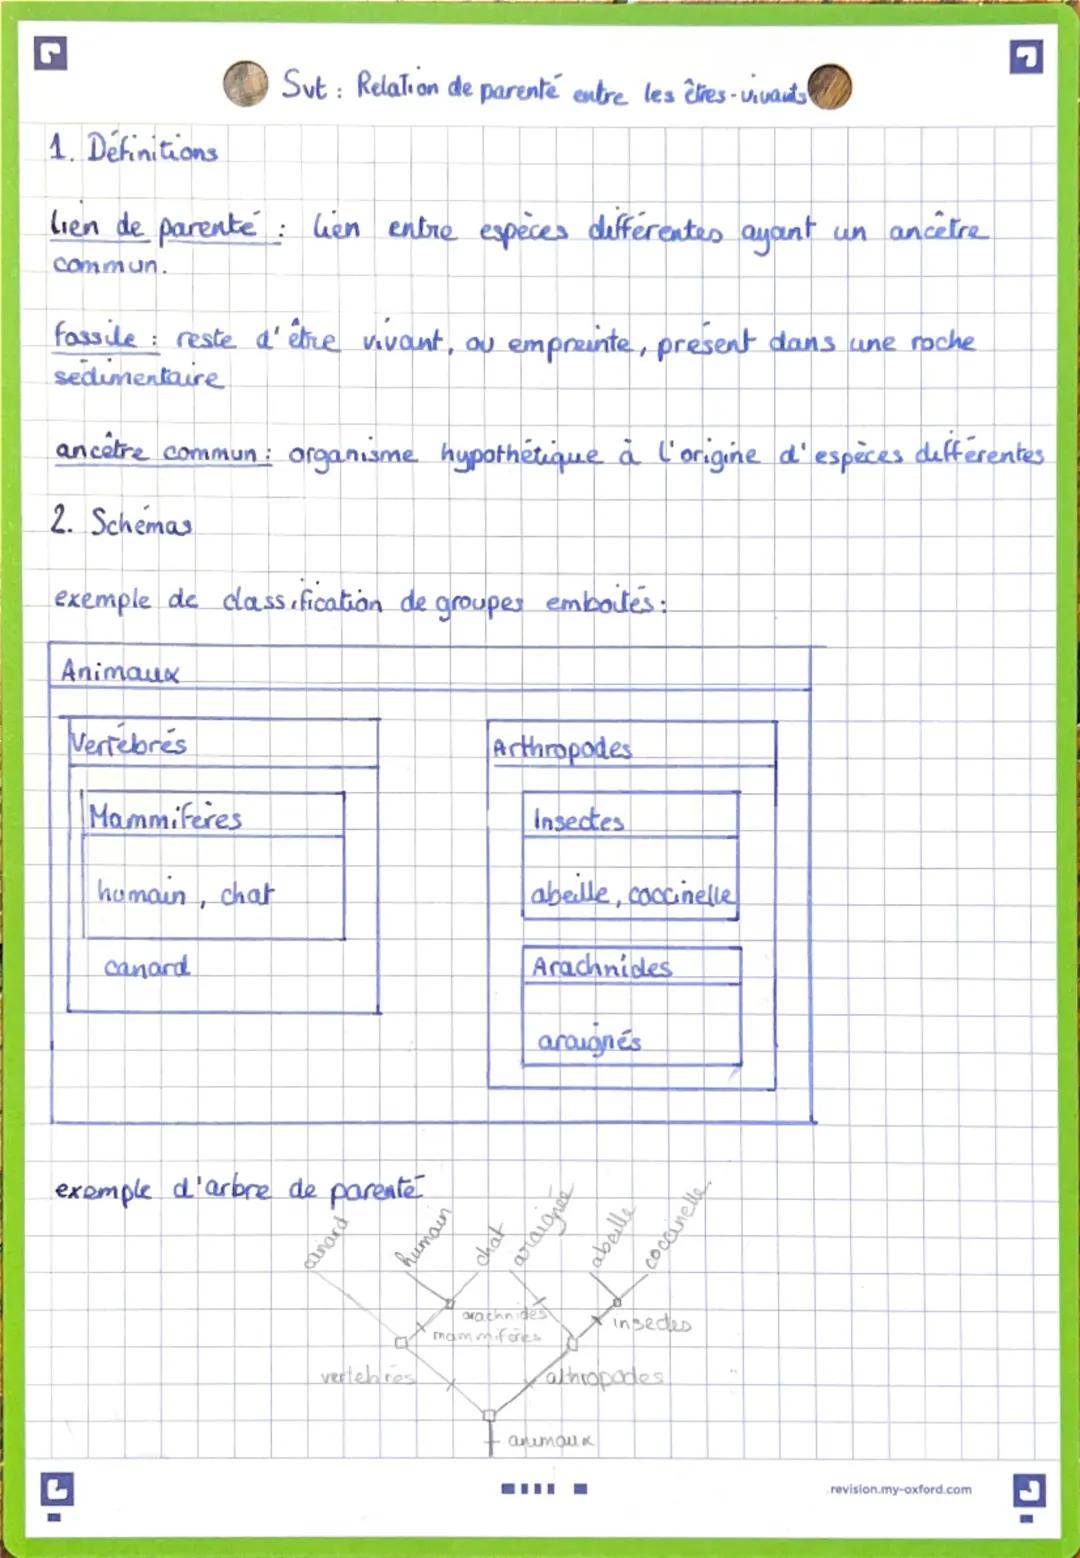 Svt : Relation de parenté entre les êtres-vivants
1. Définitions
lien de parenté : lien entre espèces différentes ayant un ancêtre
commun.
fossile : reste d'être vivant, ou empreinte, présent dans une roche
sédimentaire
ancêtre commun : organisme hypothétique à l'origine d'espèces différentes
2. Schémas
exemple de classification de groupes emboités :
Animaux
Vertébrés
Arthropodes
Mammifères
Insectes
humain, chat
abeille, coccinelle
canard
Arachnides
araignés
exemple d'arbre de parenté
canard
humain
chat
araignée
abeille
coccinelle
arachnides
insectes
mammifères
vertebrés
athropodes
animaux
revision.my-oxford.com